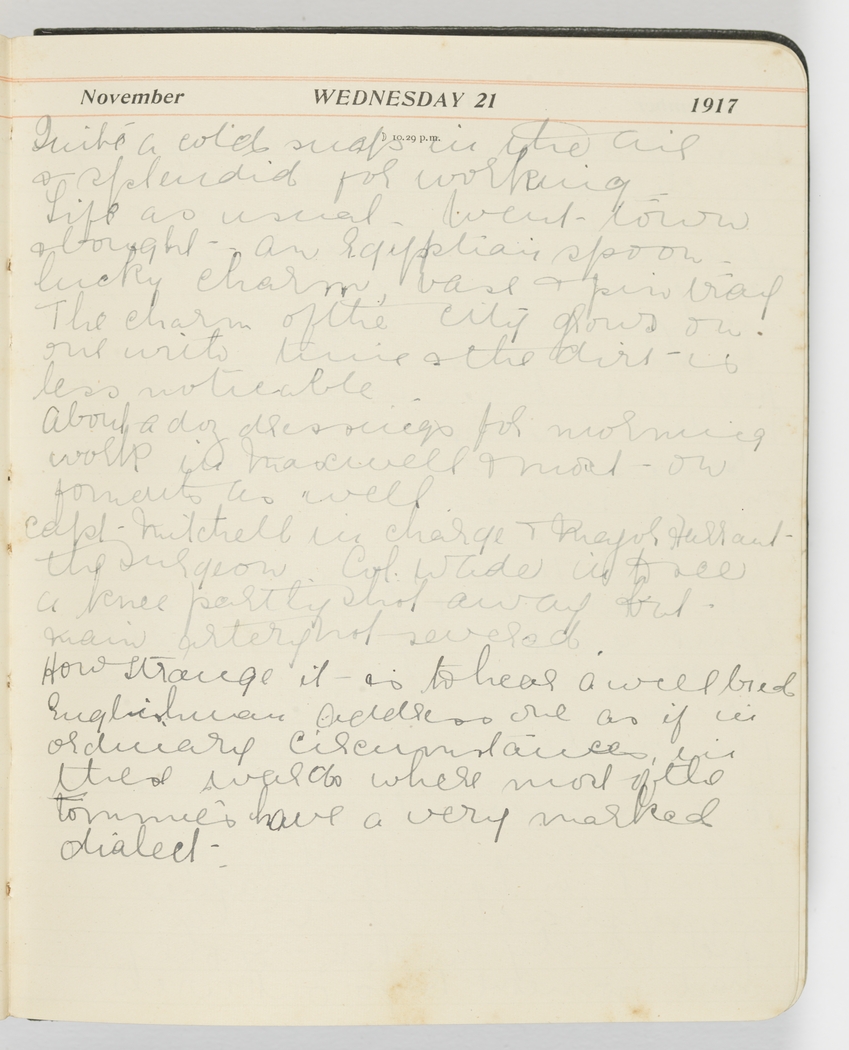 November WEDNESDAY 21 1917
10.29 p.m.
Quite a cold snap in the air
& splendid for working
Life as usual - Went town
& bought - an Egyptian spoon -
lucky charm, vase & pin tray
The charm of the city grows on
one with time & the dirt is
less noticable
About a doz dressings for morning
work in Maxwell & most - on
foments as well
Capt - Mitchell in charge & Major
the surgeon Col. Wade in to see
a knee partly shot away but -
main artery not severed
How strange it - is to hear a well bred
Englishman address one as if in
ordinary circumstances, in
these wards where most of the
tommies have a very marked
dialect -